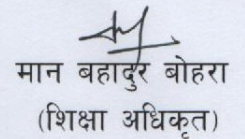 मान बहादुर बोहरा
(शिक्षा अधिकृत)